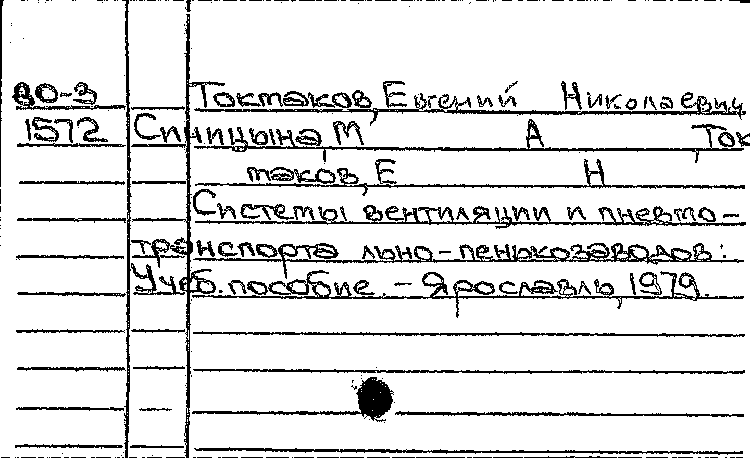 ВО-3 Токмаков, Евгений Николаевич
1572 Синицына, М А , Ток
маков, Е Н
Системы вентиляции и пневмо-
транспорта льно-пенькозаводов:
Учеб. пособие. - Ярославль, 1979.